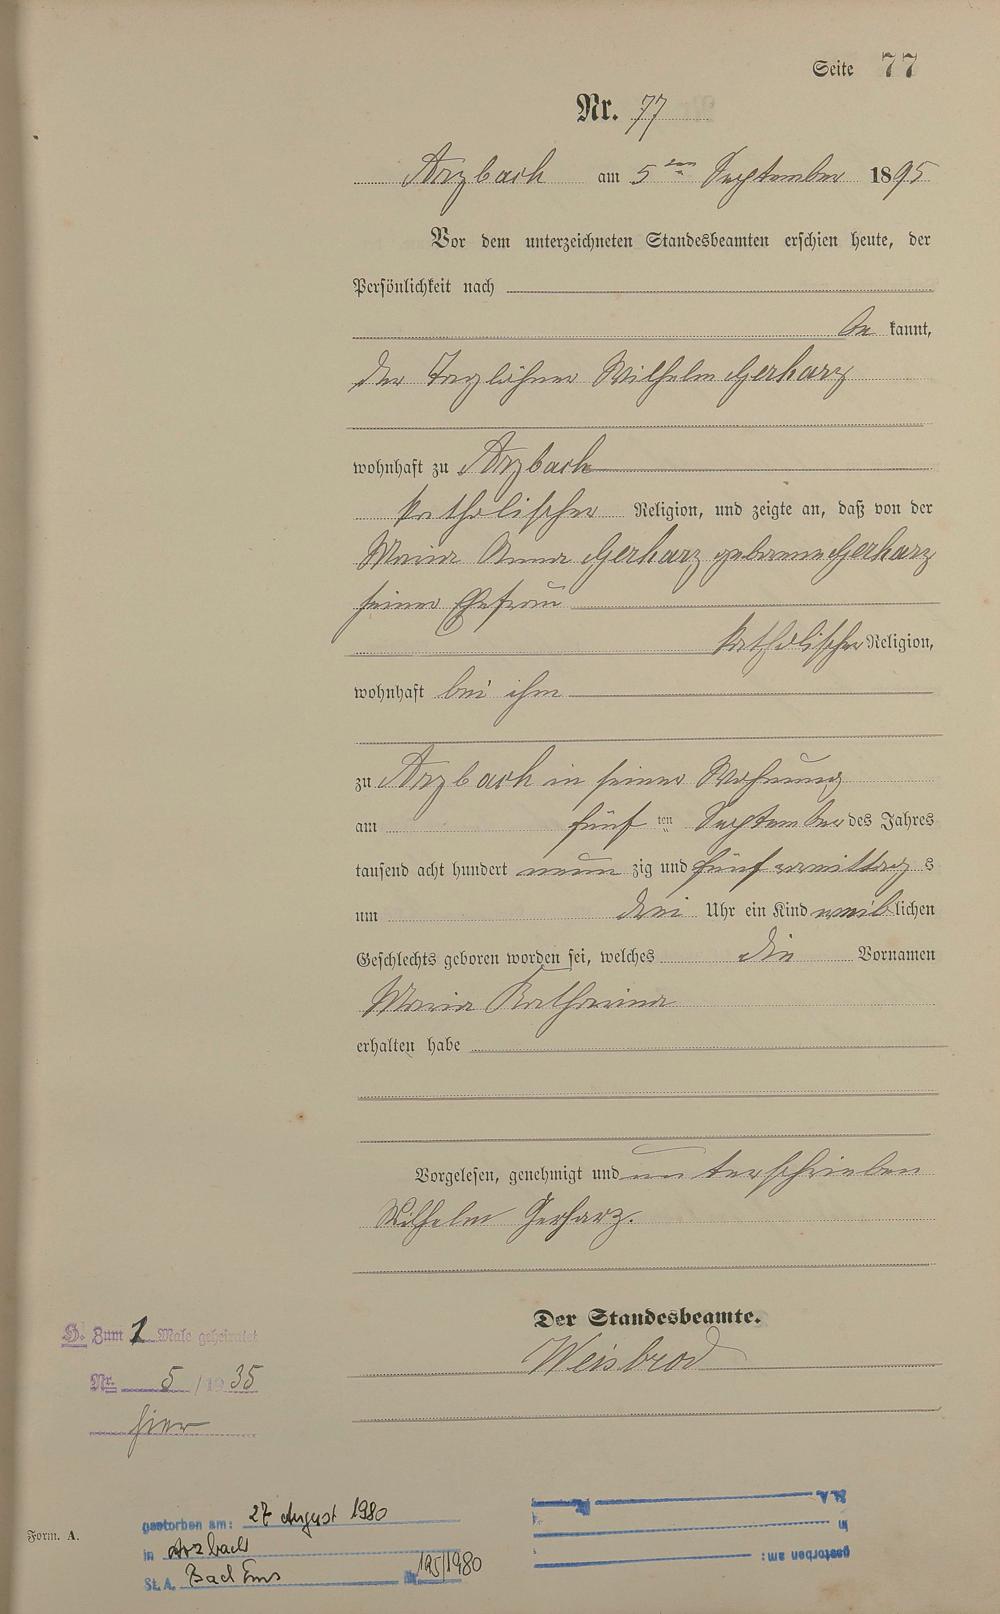 Seite 77
Nr. 77
Arzbach am 5ten September 1895
Vor dem unterzeichneten Standesbeamten erschien heute, der
Persönlichkeit nach
be kannt,
der Taglöhner Wilhelm Gerharz
wohnhaft zu Arzbach
katholischer Religion, und zeigte an, daß von der
Maria Anna Gerharz geborene Gerharz
seiner Ehefrau
katholischer Religion,
wohnhaft bei ihm
zu Arzbach in seiner Wohnung
am fünf ten September des Jahres
tausend acht hundert neun zig und fünf vormittag s
um drei Uhr ein Kind weiblichen
Geschlechts geboren worden sei, welches die Vornamen
Maria Katharina
erhalten habe
Vorgelesen, genehmigt und unterschrieben
Wilhelm Gerharz.
Der Standesbeamte.
Weisbrod
H. Zum 1 Male geheiratet
Nr. 5/1935
hier
gestorben am: 27 August 1980
in Arzbach
St. A. Bad Ems Nr. 195/1980
Form. A.
St. A. Nr.
in
gestorben am: